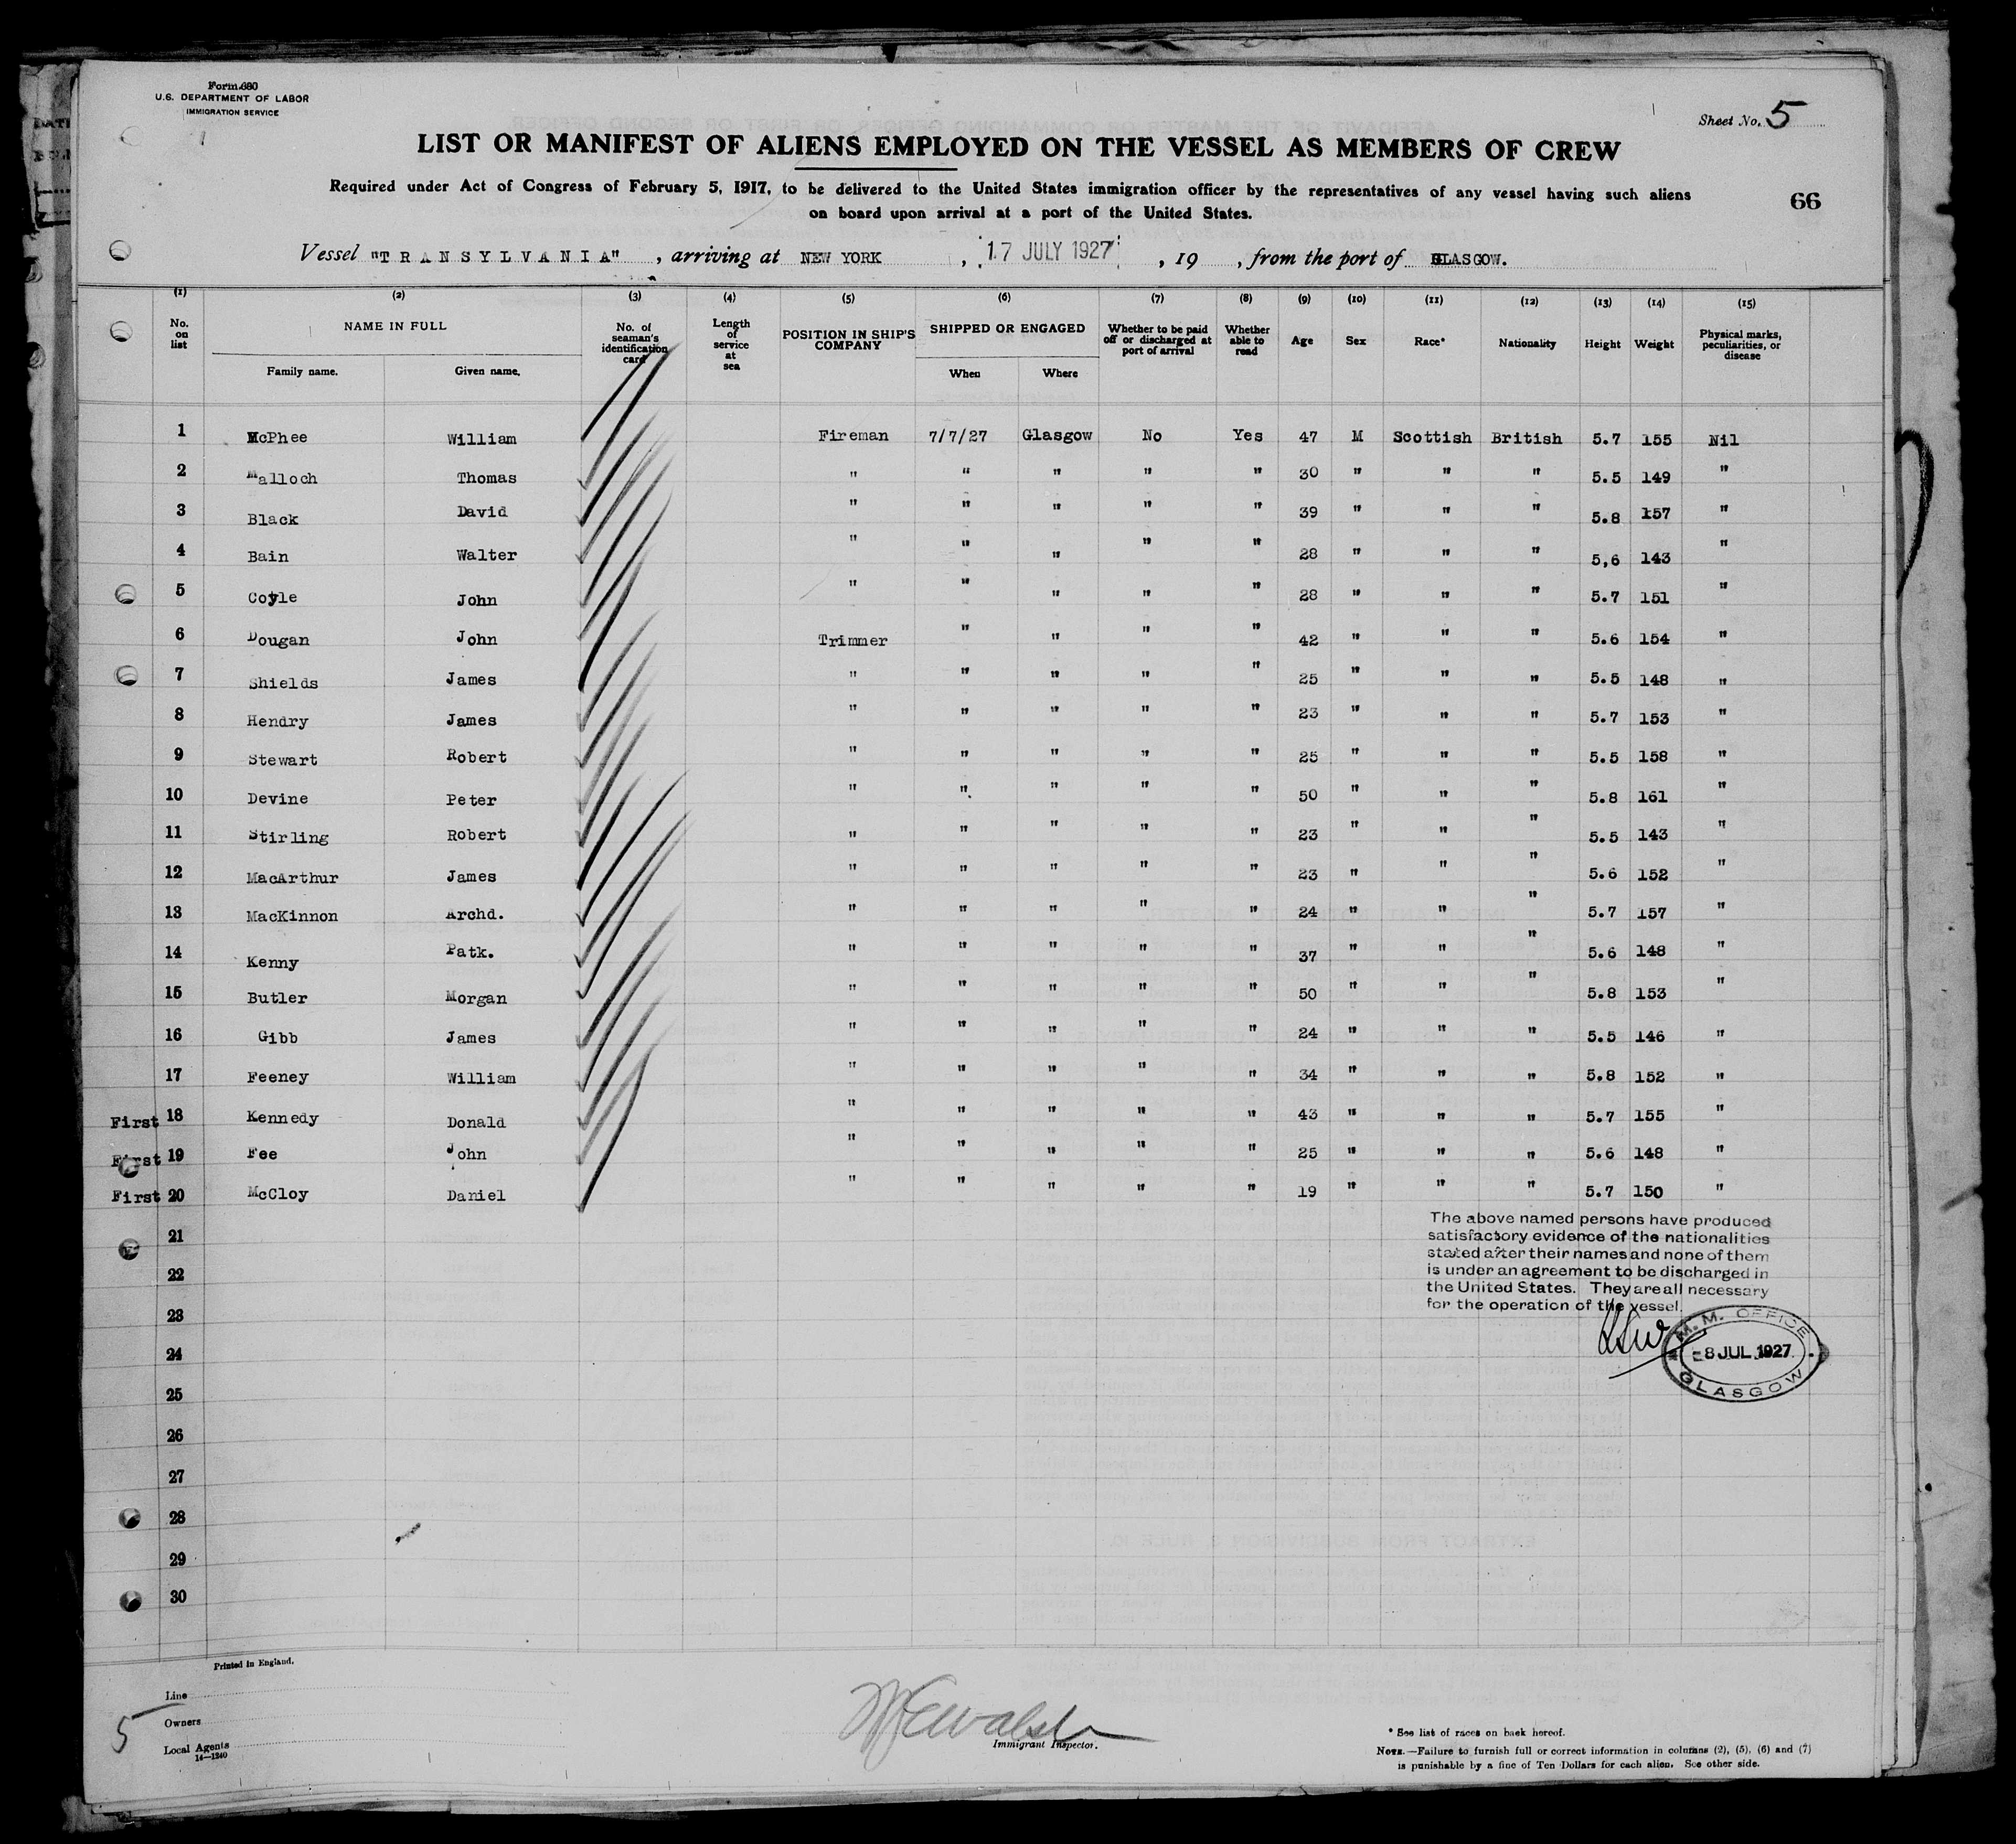 Form 680
U.S. DEPARTMENT OF LABOR
IMMIGRATION SERVICE
Sheet No. 5
LIST OR MANIFEST OF ALIENS EMPLOYED ON THE VESSEL AS MEMBERS OF CREW
Required under Act of Congress of February 5, 1917, to be delivered to the United States immigration officer by the representatives of any vessel having such aliens
on board upon arrival at a port of the United States.
66
Vessel "TRANSYLVANIA", arriving at NEW YORK, 17 JULY 1927, 19 , from the port of GLASGOW.
(1) (2) (3) (4) (5) (6) (7) (8) (9) (10) (11) (12) (13) (14) (15)
No. on list NAME IN FULL Family name. Given name. No. of seaman's identification card Length of service at sea POSITION IN SHIP'S COMPANY SHIPPED OR ENGAGED When Where Whether to be paid off or discharged at port of arrival Whether able to read Age Sex Race* Nationality Height Weight Physical marks, peculiarities, or disease
1 McPhee William Fireman 7/7/27 Glasgow No Yes 47 M Scottish British 5.7 155 Nil
2 Malloch Thomas " " " " " 30 " " " 5.5 149 "
3 Black David " " " " " 39 " " " 5.8 157 "
4 Bain Walter " " " " " 28 " " " 5,6 143 "
5 Coyle John " " " " " 28 " " " 5.7 151 "
6 Dougan John Trimmer " " " " 42 " " " 5.6 154 "
7 Shields James " " " " " 25 " " " 5.5 148 "
8 Hendry James " " " " " 23 " " " 5.7 153 "
9 Stewart Robert " " " " " 25 " " " 5.5 158 "
10 Devine Peter " " " " " 50 " " " 5.8 161 "
11 Stirling Robert " " " " " 23 " " " 5.5 143 "
12 MacArthur James " " " " " 23 " " " 5.6 152 "
13 MacKinnon Archd. " " " " " 24 " " " 5.7 157 "
14 Kenny Patk. " " " " " 37 " " " 5.6 148 "
15 Butler Morgan " " " " " 50 " " " 5.8 153 "
16 Gibb James " " " " " 24 " " " 5.5 146 "
17 Feeney William " " " " " 34 " " " 5.8 152 "
First 18 Kennedy Donald " " " " " 43 " " " 5.7 155 "
First 19 Fee John " " " " " 25 " " " 5.6 148 "
First 20 McCloy Daniel " " " " " 19 " " " 5.7 150 "
21
22
23
24
25
26
27
28
29
30
The above named persons have produced
satisfactory evidence of the nationalities
stated after their names and none of them
is under an agreement to be discharged in
the United States. They are all necessary
for the operation of the vessel.
M.M. OFFICE
8 JUL 1927
GLASGOW
Printed in England.
Line
Owners
Local Agents
14—1240
5
Immigrant Inspector.
* See list of races on back hereof.
NOTE.—Failure to furnish full or correct information in columns (2), (5), (6) and (7)
is punishable by a fine of Ten Dollars for each alien. See other side.